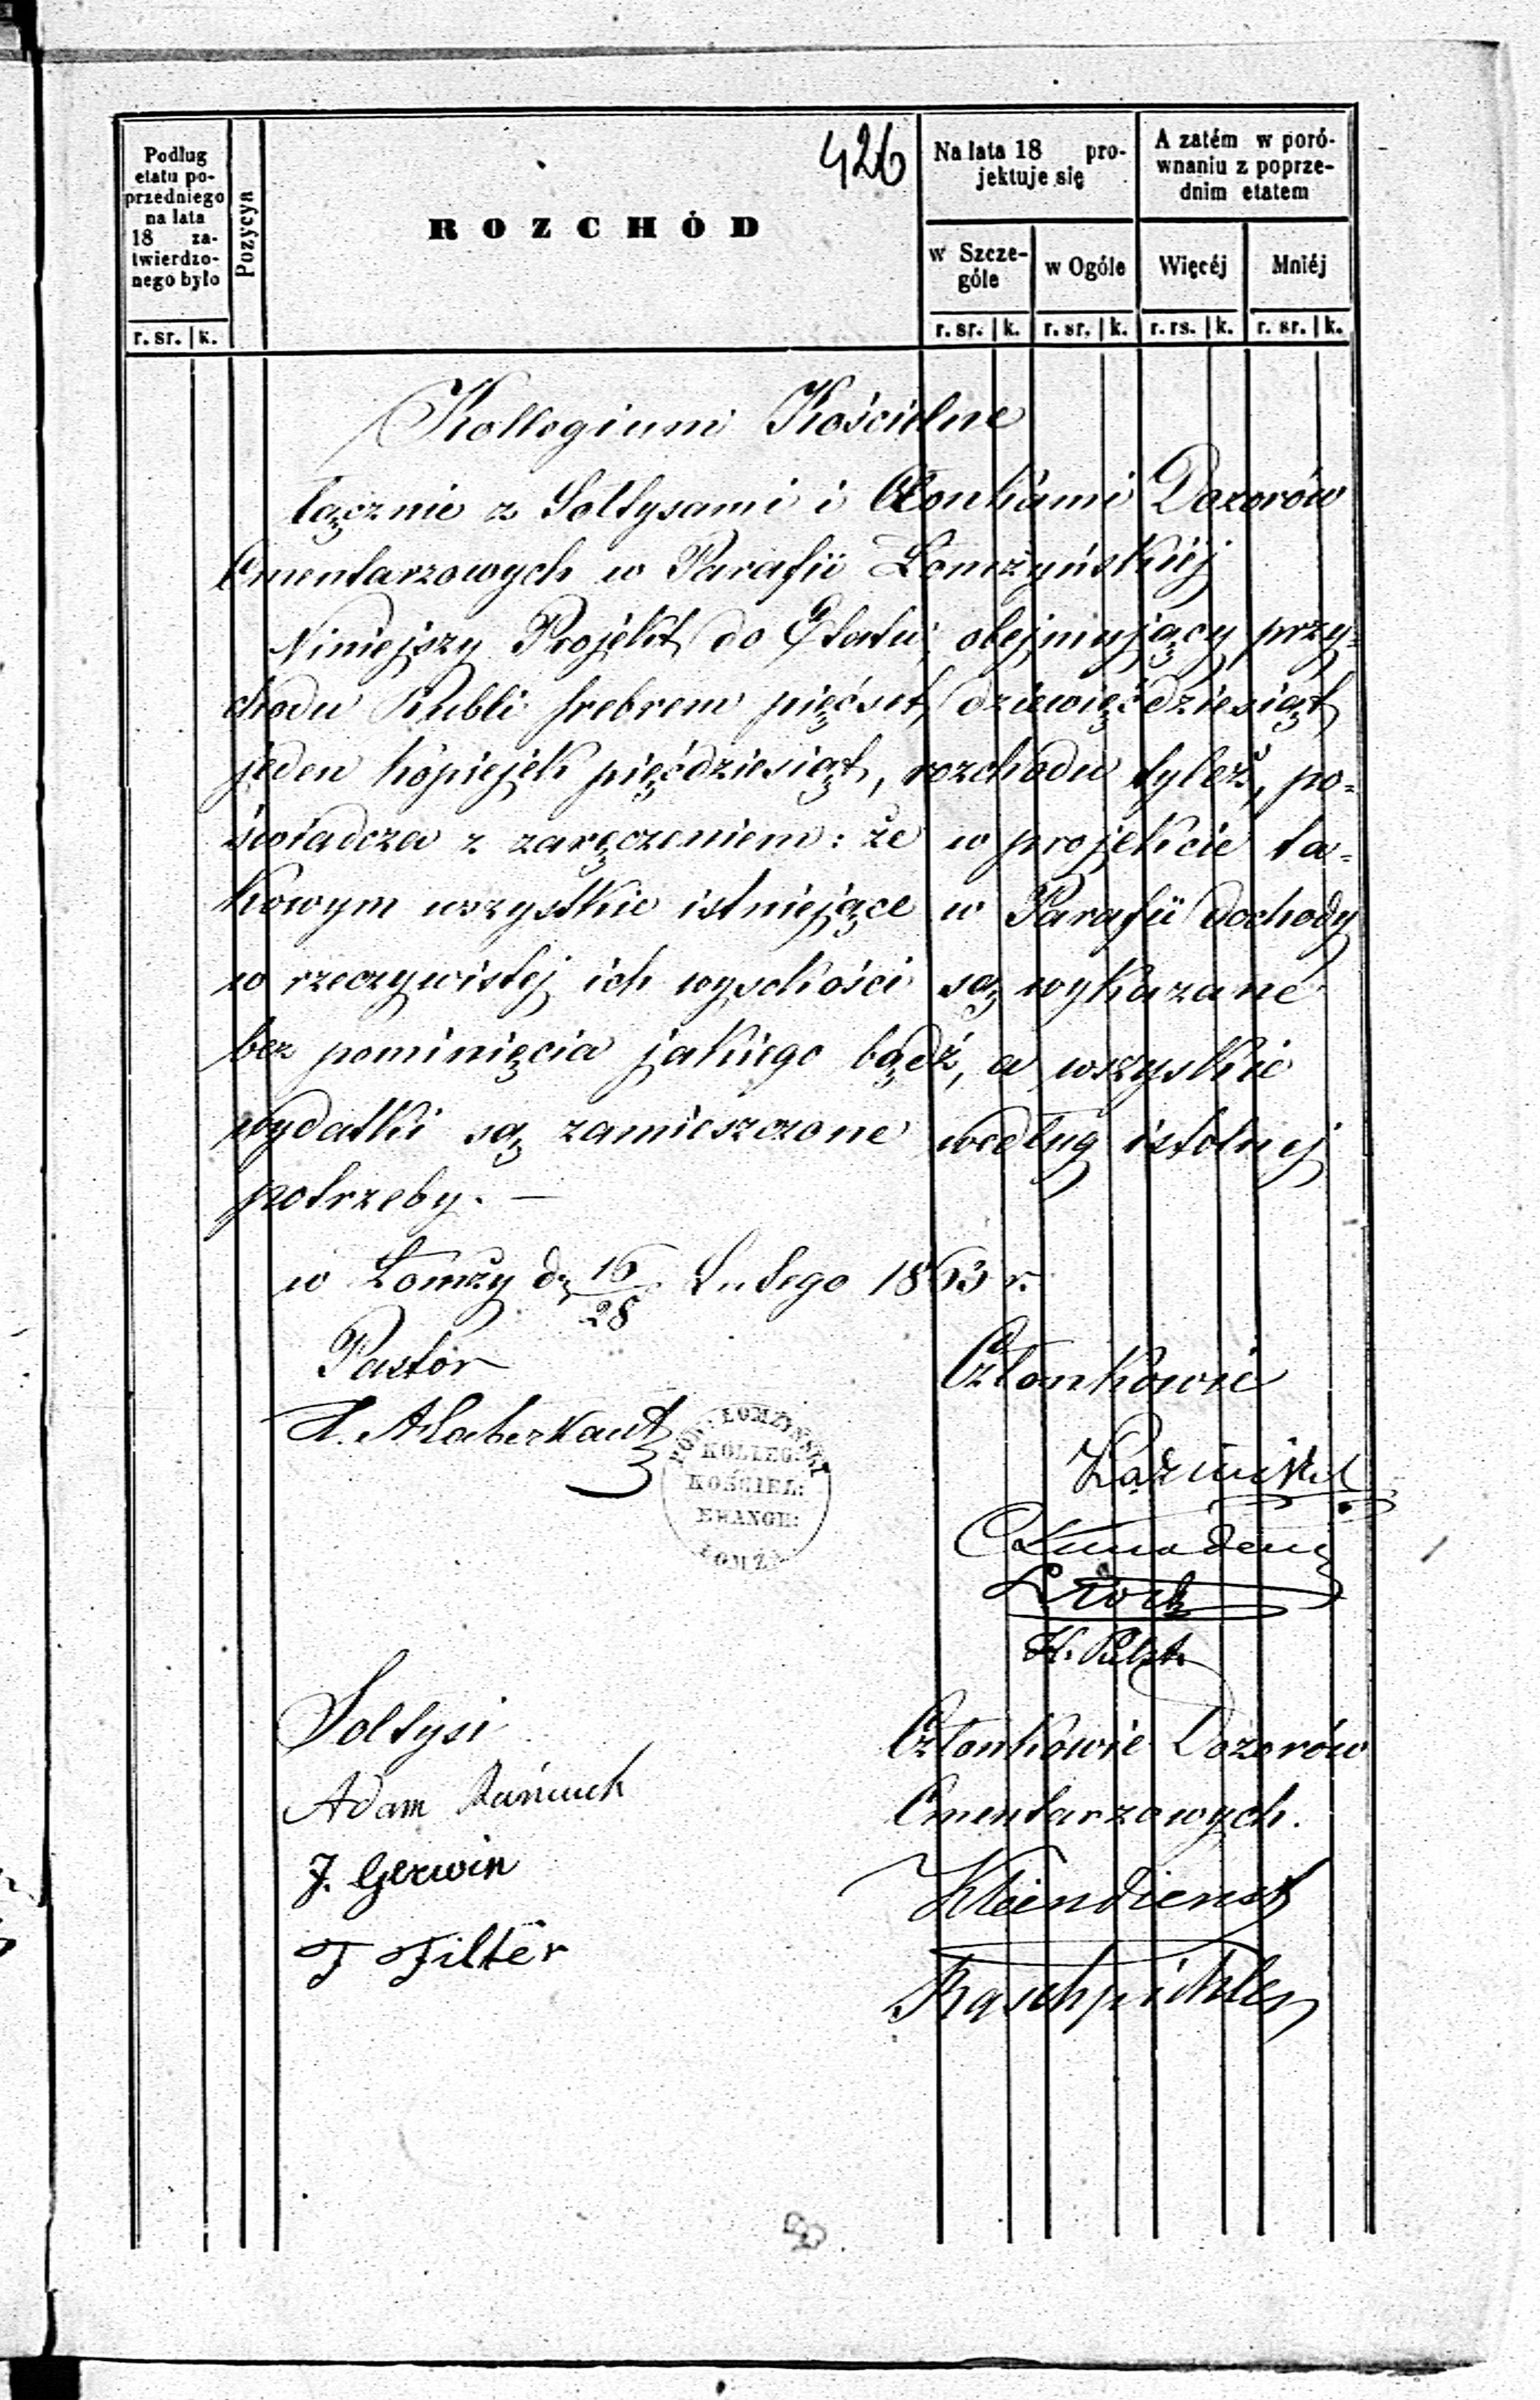 426
Podług
etatu po-
przedniego
na lata
18 za-
twierdzo-
nego było
Pozycya
ROZCHÓD
Na lata 18 pro-
jektuje się
A zatém w poró-
wnaniu z poprze-
dnim etatem
w Szcze-
góle
w Ogóle
Więcéj
Mniéj
r. sr. k.
r. sr. k.
r. sr. k.
r. rs. k.
r. sr. k.
Kollegium Kościelne
łącznie z Sołtysami i Członkami Dozorów
Cmentarzowych w Parafii Łomżyńskiéj
Niniejszy Projekt do Etatu obejmujący przy=
chodu Rubli srebrem pięćset dziewięćdziesiąt
jeden kopiejek pięćdziesiąt, rozchodu tyleż, po=
świadcza z zaręczeniem: że w projekcie ta=
kowym wszystkie istniejące w Parafii dochody
w rzeczywistej ich wysokości są wykazane
bez pominięcia jakiego bądź, a wszystkie
wydatki są zamieszczone według istotnej
potrzeby. —
w Łomży d. 16/28 Lutego 1863 r.
Pastor
Członkowie
KOLLEG:
KOŚCIEL:
EWANGE:
ŁOMŻA
H. Pelzt
Sołtysi
Członkowie Dozorów
Cmentarzowych.
Adam
J. Gerwin
F Filter
Kleindienst